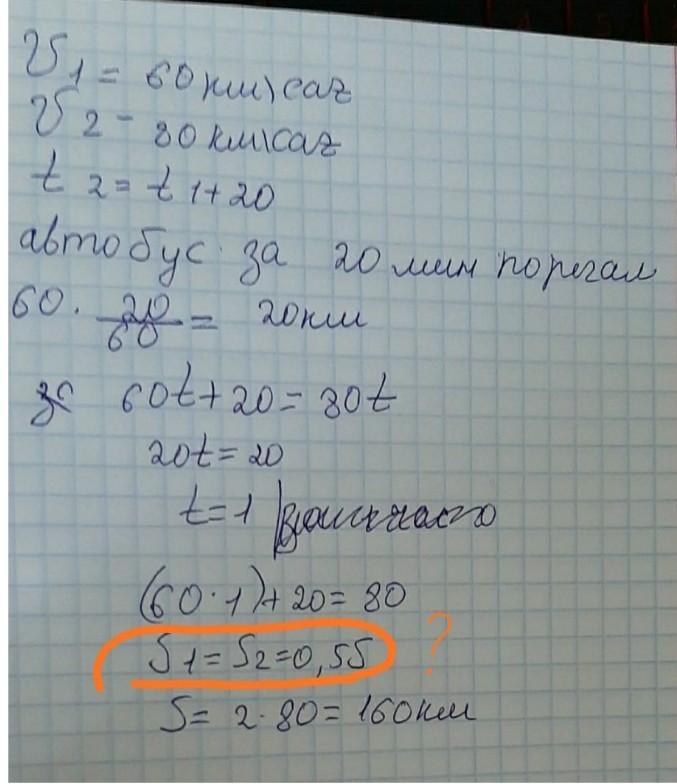 V1 = 60 км\саг
V2 - 80 км\саг
t2 = t1 + 20
автобус за 20 мин
60 · 20/60 = 20 км
60t + 20 = 80t
20t = 20
t = 1
(60·1) + 20 = 80
S1 = S2 = 0,5S ?
S = 2·80 = 160 км